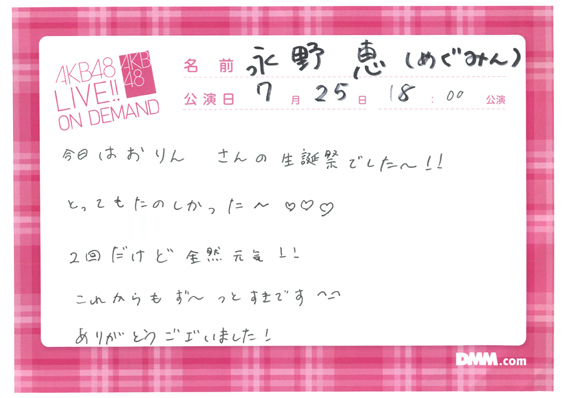 AKB48
LIVE!!
ON DEMAND
AKB
48
名前 永野 恵 (めぐみん)
公演日 7月25日 18:00 公演
今日はおりん さんの生誕祭でした〜!!
とってもたのしかった〜 ♡♡♡
2回だけど全然元気!!
これからもず〜っとすきです^^
ありがとうございました!
DMM.com